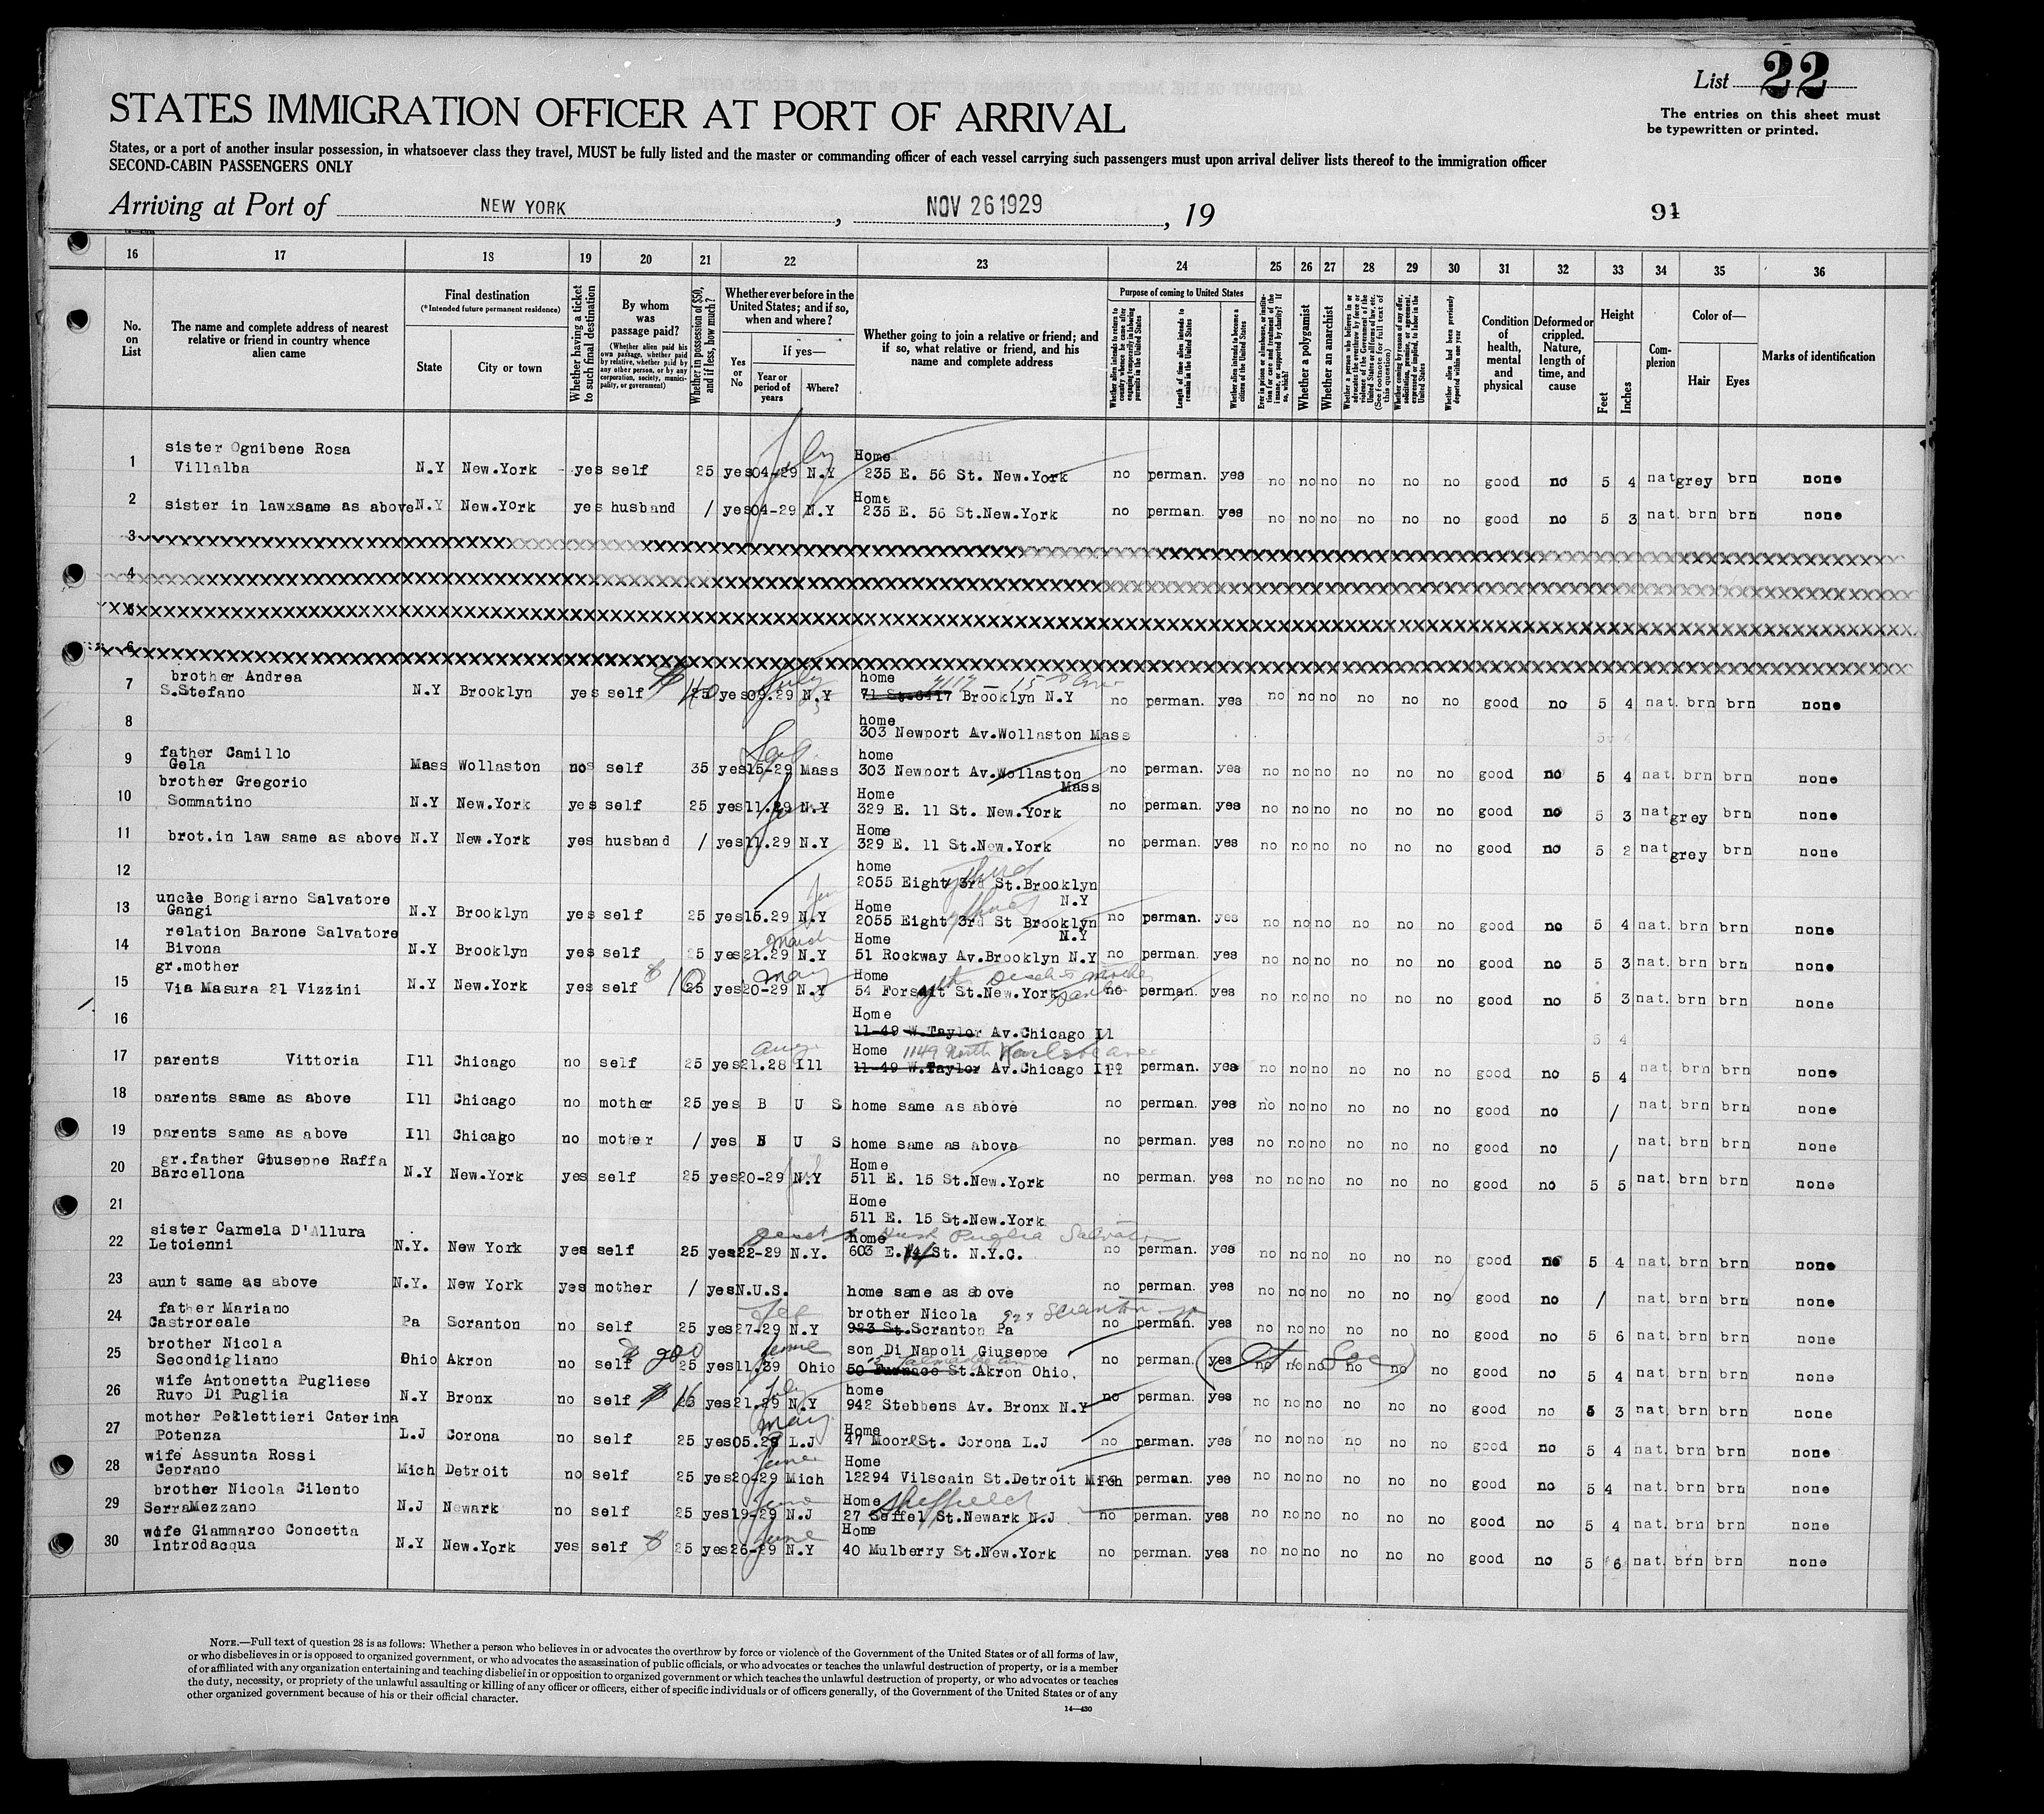 List 22
The entries on this sheet must
be typewritten or printed.
STATES IMMIGRATION OFFICER AT PORT OF ARRIVAL
States, or a port of another insular possession, in whatsoever class they travel, MUST be fully listed and the master or commanding officer of each vessel carrying such passengers must upon arrival deliver lists thereof to the immigration officer
SECOND-CABIN PASSENGERS ONLY
Arriving at Port of NEW YORK, NOV 26 1929, 19
91
16 17 18 19 20 21 22 23 24 25 26 27 28 29 30 31 32 33 34 35 36
No. on List
The name and complete address of nearest relative or friend in country whence alien came
Final destination
(*Intended future permanent residence)
State
City or town
Whether having a ticket to such final destination
By whom was passage paid?
(Whether alien paid his own passage, whether paid by relative, whether paid by any other person, or by any corporation, society, municipality, or government)
Whether in possession of $50, and if less, how much?
Whether ever before in the United States; and if so, when and where?
Yes or No
If yes—
Year or period of years
Where?
Whether going to join a relative or friend; and if so, what relative or friend, and his name and complete address
Purpose of coming to United States
Whether alien intends to return to country whence he came after engaging temporarily in laboring pursuits in the United States
Length of time alien intends to remain in the United States
Whether alien intends to become a citizen of the United States
Ever in prison or almshouse, or institution for care and treatment of the insane, or supported by charity? If so, which?
Whether a polygamist
Whether an anarchist
Whether a person who believes in or advocates the overthrow by force or violence of the Government of the United States or all forms of law, etc. (See footnote for full text of this question)
Whether coming by reason of any offer, solicitation, promise, or agreement, expressed or implied, to labor in the United States
Whether alien had been previously deported within one year
Condition of health, mental and physical
Deformed or crippled. Nature, length of time, and cause
Height
Feet
Inches
Complexion
Color of—
Hair
Eyes
Marks of identification
July
1 sister Ognibene Rosa Villalba N.Y New.York yes self 25 yes 04-29 N.Y Home 235 E. 56 St. New.York no perman. yes no no no no no no good no 5 4 nat grey brn none
2 sister in lawxsame as above N.Y New.York yes husband / yes 04-29 N.Y Home 235 E. 56 St.New.York no perman. yes no no no no no no good no 5 3 nat. brn brn none
3
4
5
6
7 brother Andrea S.Stefano N.Y Brooklyn yes self 25 yes 09.29 N.Y July home Brooklyn N.Y no perman. yes no no no no no no good no 5 4 nat. brn brn none
8 home 303 Newport Av.Wollaston Mass
9 father Camillo Gela Mass Wollaston no self 35 yes 15-29 Mass home 303 Newport Av.Wollaston Mass no perman. yes no no no no no no good no 5 4 nat. brn brn none
10 brother Gregorio Sommatino N.Y New.York yes self 25 yes 11.29 N.Y Home 329 E. 11 St. New.York no perman. yes no no no no no no good no 5 3 nat grey brn none
11 brot.in law same as above N.Y New.York yes husband / yes 11.29 N.Y Home 329 E. 11 St.New.York no perman. yes no no no no no no good no 5 2 nat grey brn none
12 home 2055 Eight 3rd St.Brooklyn N.Y
13 uncle Bongiarno Salvatore Gangi N.Y Brooklyn yes self 25 yes 15.29 N.Y Home 2055 Eight 3rd St Brooklyn N.Y no perman. yes no no no no no no good no 5 4 nat. brn brn none
14 relation Barone Salvatore Bivona N.Y Brooklyn yes self 25 yes 21.29 N.Y March Home 51 Rockway Av.Brooklyn N.Y no perman. yes no no no no no no good no 5 3 nat. brn brn none
15 gr.mother Via Masura 21 Vizzini N.Y New.York yes self 25 yes 20-29 N.Y May Home 54 Forsyth St.New.York no perman. yes no no no no no no good no 5 3 nat. brn brn none
16 Home 11-49 W.Taylor Av.Chicago Il 5 4
17 parents Vittoria Ill Chicago no self 25 yes 21.28 Ill Aug. Home 1149 North 11-49 W.Taylor Av.Chicago Ill no perman. yes no no no no no no good no 5 4 nat. brn brn none
18 parents same as above Ill Chicago no mother 25 yes B U S home same as above no perman. yes no no no no no no good no / nat. brn brn none
19 parents same as above Ill Chicago no mother / yes B U S home same as above no perman. yes no no no no no no good no / nat. brn brn none
20 gr.father Giuseppe Raffa Barcellona N.Y New.York yes self 25 yes 20-29 N.Y Home 511 E. 15 St.New.York no perman. yes no no no no no no good no 5 5 nat. brn brn none
21 Home 511 E. 15 St.New.York
22 sister Carmela D'Allura Letoienni N.Y. New York yes self 25 yes 22-29 N.Y. Home Husb Puglia Salvatore 603 E. 14 St. N.Y.C. no perman. yes no no no no no no good no 5 4 nat. brn brn none
23 aunt same as above N.Y. New York yes mother / yes N.U.S. home same as above no perman. yes no no no no no no good no / nat. brn brn none
24 father Mariano Castroreale Pa Scranton no self 25 yes 27-29 N.Y brother Nicola 923 St.Scranton Pa no perman. yes no no no no no no good no 5 6 nat. brn brn none
25 brother Nicola Secondigliano Ohio Akron no self $ 200 25 yes 11.39 Ohio June son Di Napoli Giuseppe 50 Furnace St.Akron Ohio. no perman. yes no no no no no no good no 5 4 nat. brn brn none
26 wife Antonetta Pugliese Ruvo Di Puglia N.Y Bronx no self $ 16 yes 21.29 N.Y July home 942 Stebbens Av. Bronx N.Y no perman. yes no no no no no no good no 5 3 nat. brn brn none
27 mother Pellettieri Caterina Potenza L.J Corona no self 25 yes 05.29 L.J May Home 47 Moore St. Corona L.J no perman. yes no no no no no no good no 5 4 nat. brn brn none
28 wife Assunta Rossi Ceprano Mich Detroit no self 25 yes 20-29 Mich June Home 12294 Vilscain St.Detroit Mich no perman. yes no no no no no no good no 5 4 nat. brn brn none
29 brother Nicola Cilento SerraMezzano N.J Newark no self 25 yes 19-29 N.J June Home Sheffield 27 Seffel St.Newark N.J no perman. yes no no no no no no good no 5 4 nat. brn brn none
30 wife Giammarco Concetta Introdacqua N.Y New.York yes self $ 25 yes 26-29 N.Y June Home 40 Mulberry St.New.York no perman. yes no no no no no no good no 5 6 nat. brn brn none
NOTE.—Full text of question 28 is as follows: Whether a person who believes in or advocates the overthrow by force or violence of the Government of the United States or of all forms of law,
or who disbelieves in or is opposed to organized government, or who advocates the assassination of public officials, or who advocates or teaches the unlawful destruction of property, or is a member
of or affiliated with any organization entertaining and teaching disbelief in or opposition to organized government or which teaches the unlawful destruction of property, or who advocates or teaches
the duty, necessity, or propriety of the unlawful assaulting or killing of any officer or officers, either of specific individuals or of officers generally, of the Government of the United States or of any
other organized government because of his or their official character.
14—430